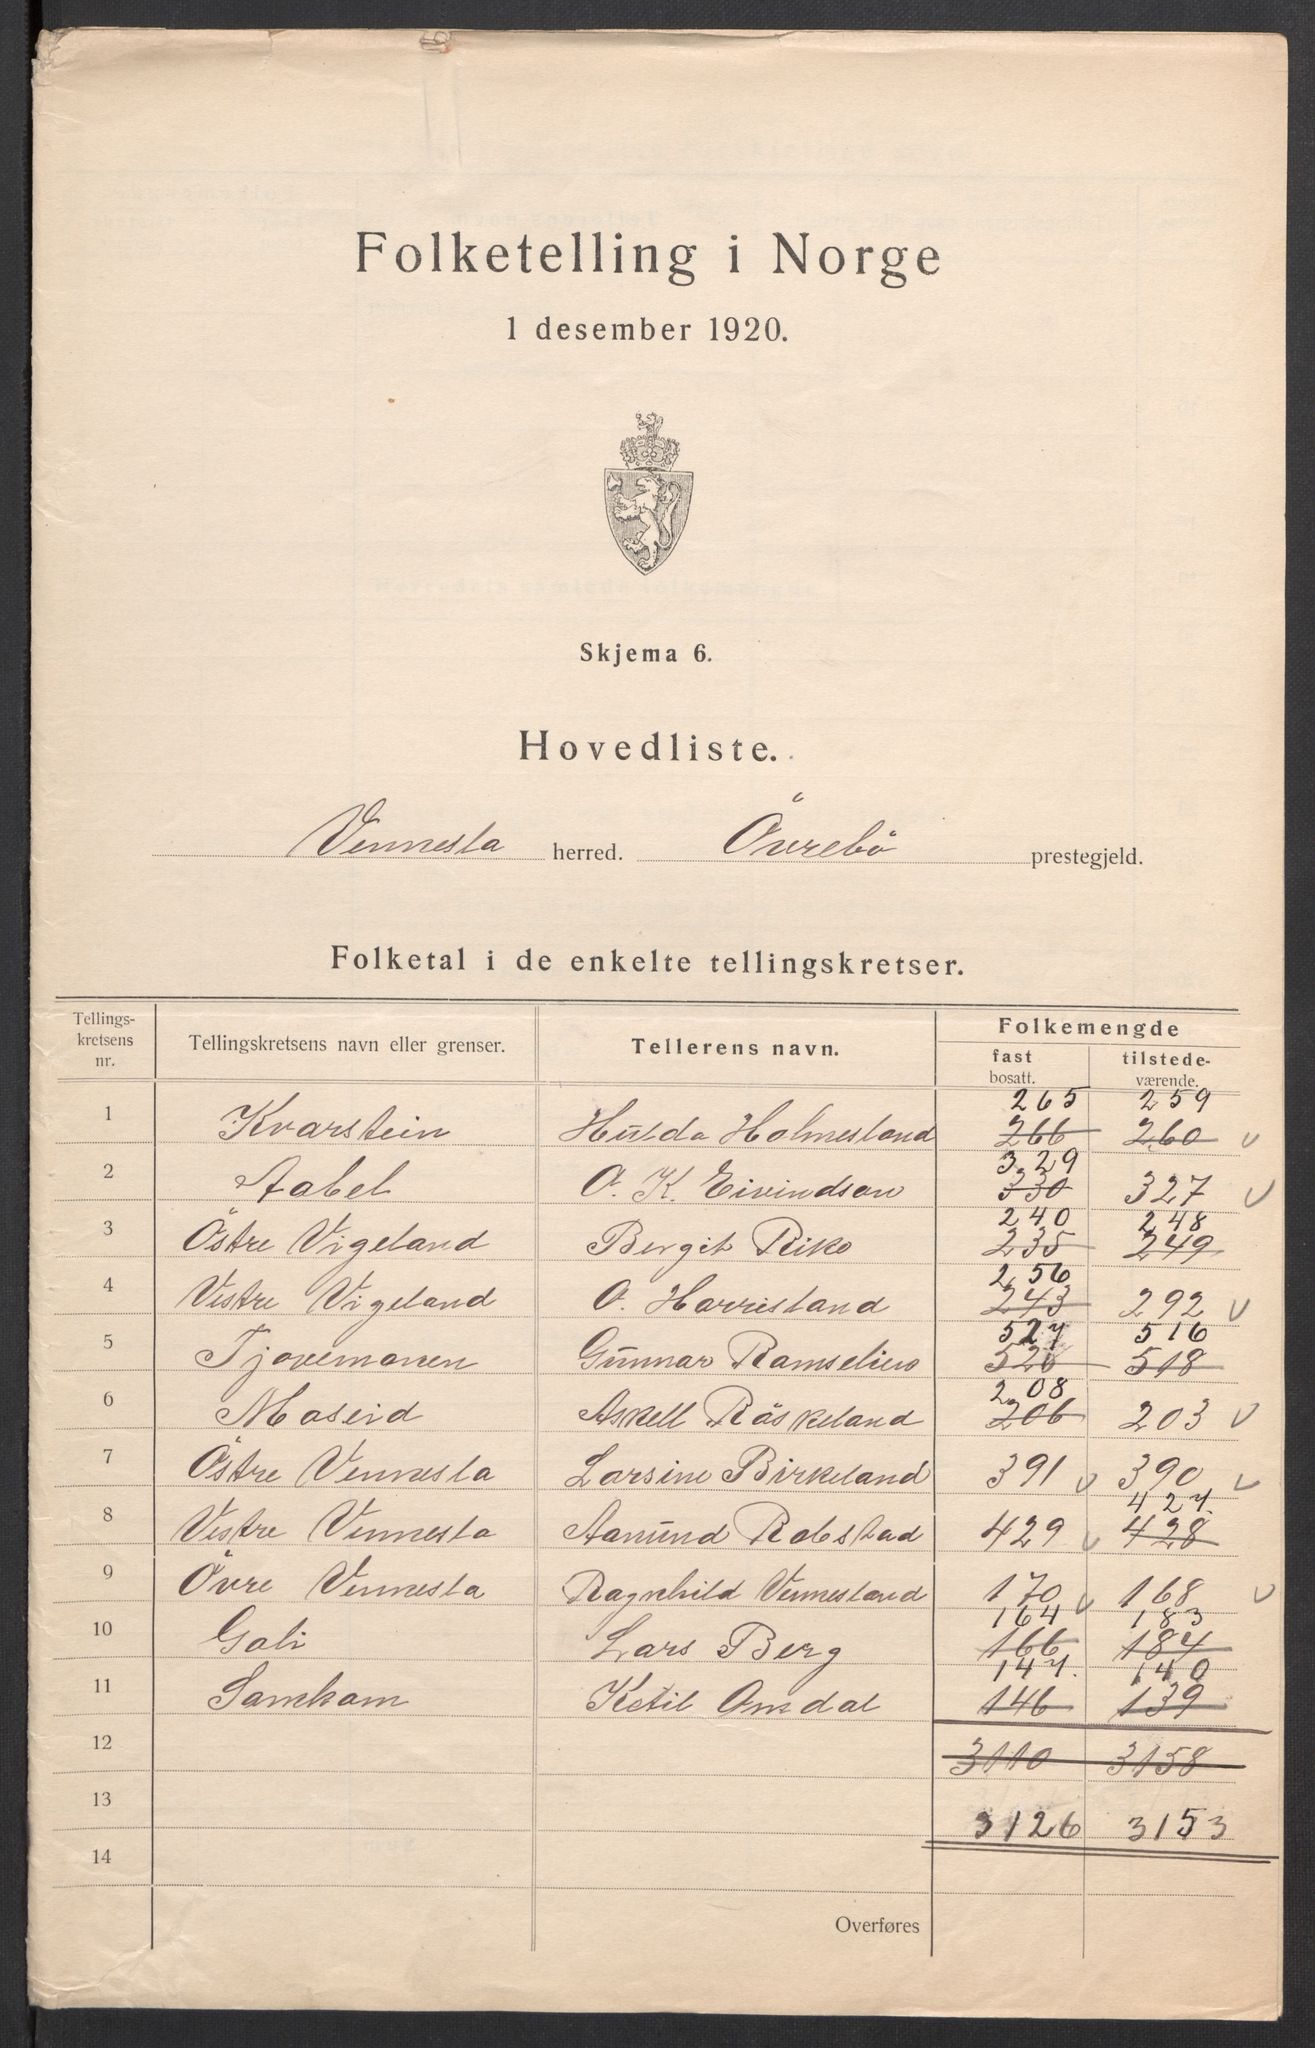 Folketelling i Norge
1 desember 1920.
Skjema 6.
Hovedliste.
Vennesla herred. Övrebö prestegjeld.
Folketal i de enkelte tellingskretser.
Tellings-kretsens nr. Tellingskretsens navn eller grenser. Tellerens navn. Folkemengde
fast bosatt. tilstede-værende.
265 259
1 Kvarstein Hulda Holmesland 266 260
329
2 Aabel O. K. Eivindson 330 327
240 248
3 Östre Vigeland Bergit Riko 235 249
256
4 Vestre Vigeland O. Horrisland 243 292
527 516
5 Tjovemonen Gunnar Ramselius 528 518
208
6 Moseid Askell Röskeland 206 203
7 Östre Vennesla Larsine Birkeland 391 390
427
8 Vestre Vennesla Aanund Robstad 429 428
9 Övre Vennesla Ragnhild Vennesland 170 168
164 183
10 Gali Lars Berg 166 184
147 140
11 Samkom Ketil Omdal 146 139
12 3110 3158
13 3126 3153
14
Overføres